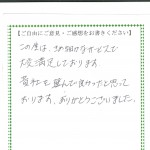 【ご自由にご意見・ご感想をお書きください】
この度は、きめ細かなサービスで
大変満足しております。
貴社を選んで良かったと思って
おります。ありがとうございました。